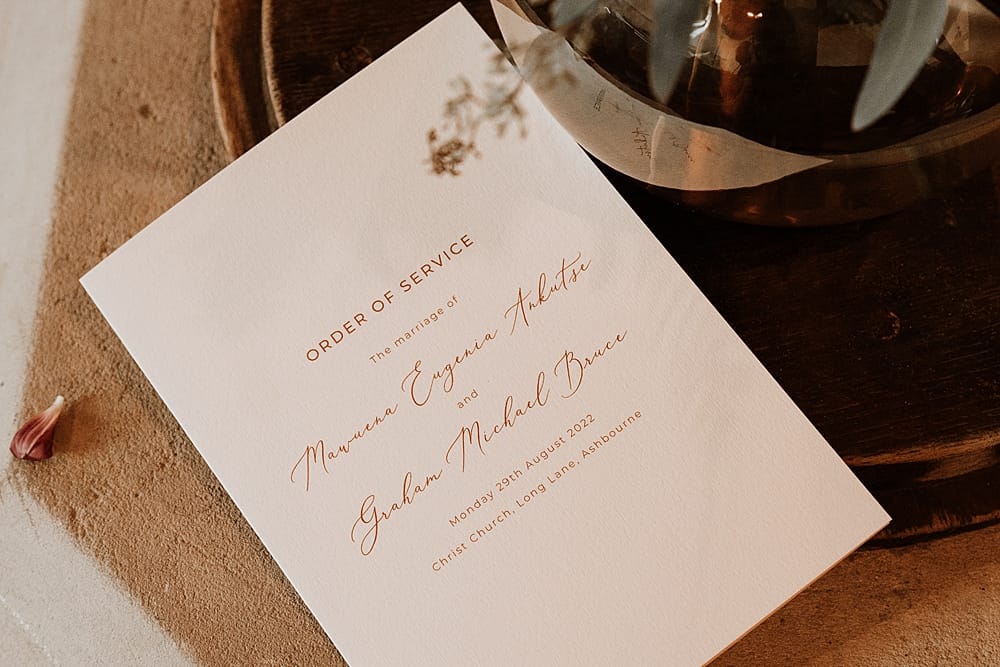 ORDER OF SERVICE
The marriage of
Mawuena Eugenia Ankutse
and
Graham Michael Bruce
Monday 29th August 2022
Christ Church, Long Lane, Ashbourne